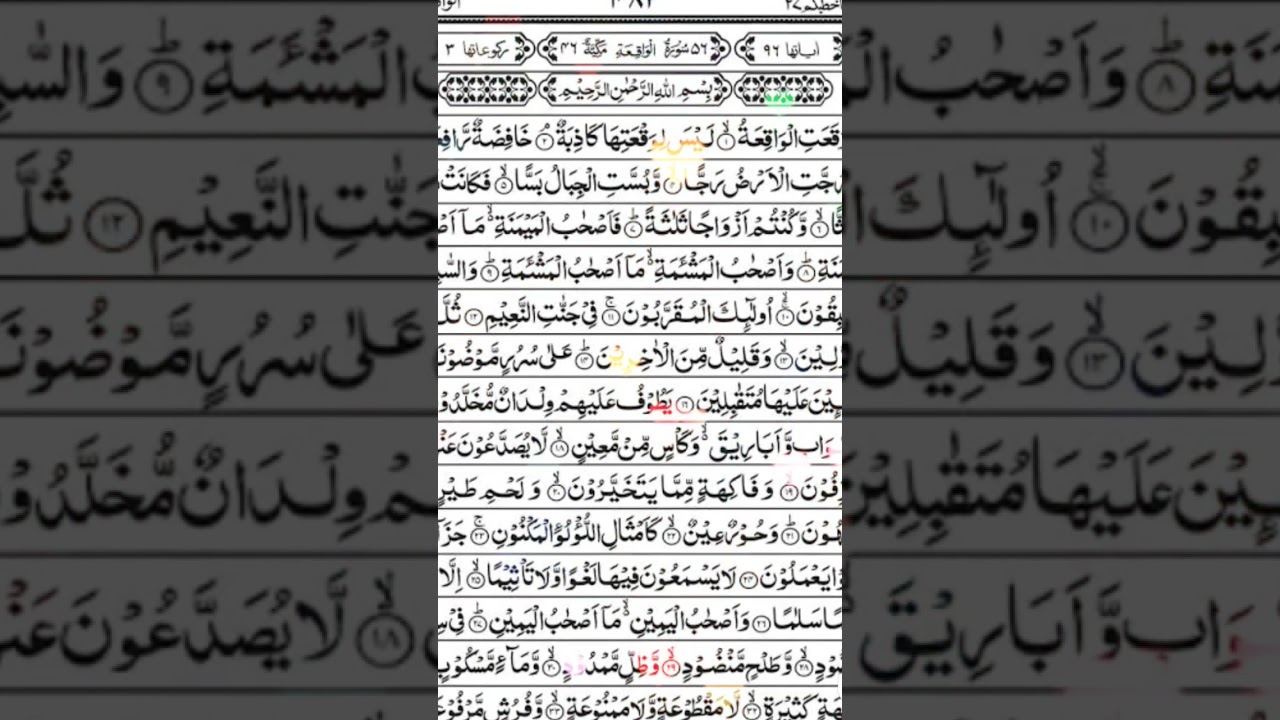 ۴۸۲
اٰیاتها ۹۶ ۵۶ سُوْرَةُ الْوَاقِعَةِ مَكِّيَّةٌ ۴۶ ركوعاتها ۳
بِسْمِ اللّٰهِ الرَّحْمٰنِ الرَّحِيْمِ
قَعَتِ الْوَاقِعَةُ ۙ﴿۱﴾ لَيْسَ لِوَقْعَتِهَا كَاذِبَةٌ ۘ﴿۲﴾ خَافِضَةٌ رَّافِعَ
رُجَّتِ الْاَرْضُ رَجًّا ۙ﴿۴﴾ وَّبُسَّتِ الْجِبَالُ بَسًّا ۙ﴿۵﴾ فَكَانَتْ
ثًّا ۙ﴿۶﴾ وَّكُنْتُمْ اَزْوَاجًا ثَلٰثَةً ؕ﴿۷﴾ فَاَصْحٰبُ الْمَيْمَنَةِ ۬ۙ مَاۤ اَصْ
مَنَةِ ؕ﴿۸﴾ وَاَصْحٰبُ الْمَشْـَٔمَةِ ۬ۙ مَاۤ اَصْحٰبُ الْمَشْـَٔمَةِ ؕ﴿۹﴾ وَالسّٰبِ
بِقُوْنَ ۚۙ﴿۱۰﴾ اُولٰٓئِكَ الْمُقَرَّبُوْنَ ۚ﴿۱۱﴾ فِيْ جَنّٰتِ النَّعِيْمِ ﴿۱۲﴾ ثُلَّ
لِيْنَ ۙ﴿۱۳﴾ وَقَلِيْلٌ مِّنَ الْاٰخِرِيْنَ ؕ﴿۱۴﴾ عَلٰى سُرُرٍ مَّوْضُوْنَ
ـِٕيْنَ عَلَيْهَا مُتَقٰبِلِيْنَ ﴿۱۶﴾ يَطُوْفُ عَلَيْهِمْ وِلْدَانٌ مُّخَلَّدُوْ
وَابٍ وَّاَبَارِيْقَ ۬ۙ وَكَاْسٍ مِّنْ مَّعِيْنٍ ۙ﴿۱۸﴾ لَّا يُصَدَّعُوْنَ عَنْ
زِفُوْنَ ۙ﴿۱۹﴾ وَفَاكِهَةٍ مِّمَّا يَتَخَيَّرُوْنَ ۙ﴿۲۰﴾ وَلَحْمِ طَيْرٍ
هُوْنَ ؕ﴿۲۱﴾ وَحُوْرٌ عِيْنٌ ۙ﴿۲۲﴾ كَاَمْثَالِ اللُّؤْلُؤِ الْمَكْنُوْنِ ۚ﴿۲۳﴾ جَزَآ
وْا يَعْمَلُوْنَ ﴿۲۴﴾ لَا يَسْمَعُوْنَ فِيْهَا لَغْوًا وَّلَا تَاْثِيْمًا ۙ﴿۲۵﴾ اِلَّا
مًا سَلٰمًا ﴿۲۶﴾ وَاَصْحٰبُ الْيَمِيْنِ ۬ۙ مَاۤ اَصْحٰبُ الْيَمِيْنِ ؕ﴿۲۷﴾ فِيْ سِ
ضُوْدٍ ۙ﴿۲۸﴾ وَّطَلْحٍ مَّنْضُوْدٍ ۙ﴿۲۹﴾ وَّظِلٍّ مَّمْدُوْدٍ ۙ﴿۳۰﴾ وَّمَآءٍ مَّسْكُوْبٍ
هَةٍ كَثِيْرَةٍ ۙ﴿۳۲﴾ لَّا مَقْطُوْعَةٍ وَّلَا مَمْنُوْعَةٍ ۙ﴿۳۳﴾ وَّفُرُشٍ مَّرْفُوْعَ